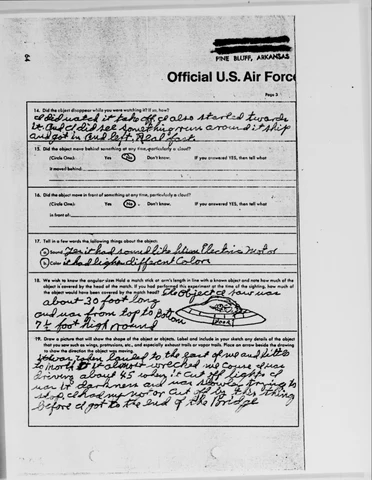 PINE BLUFF, ARKANSAS
Official U.S. Air Force
Page 3
14. Did the object disappear while you were watching it? If so, how?
I did watch it take off I also started towards
it and I did see something run around it ship
and got in and left Real fast
15. Did the object move behind something at any time, particularly a cloud?
(Circle One): Yes No Don't know. If you answered YES, then tell what
it moved behind:
16. Did the object move in front of something at any time, particularly a cloud?
(Circle One): Yes No Don't know. If you answered YES, then tell what
in front of:
17. Tell in a few words the following things about the object:
a Sound Yes it had sound like Electric Motor
b Color it had lights different Colors
18. We wish to know the angular size. Hold a match stick at arm's length in line with a known object and note how much of the
object is covered by the head of the match. If you had performed this experiment at the time of the sighting, how much of
the object would have been covered by the match head? The Object I saw was
about 30 foot long
and was from top to bottom
7½ foot high round
DOOR
19. Draw a picture that will show the shape of the object or objects. Label and include in your sketch any details of the object
that you saw such as wings, protrusions, etc., and especially exhaust trails or vapor trails. Place an arrow beside the drawing
to show the direction the object was moving.
it was when landed to the east of me and little
to north it almost wrecked me cause I was
driving about 45 when it cut off lights I
was in darkness and was slowly trying to
stop, I had my motor cut off by this thing
before I got to the end of the Bridge